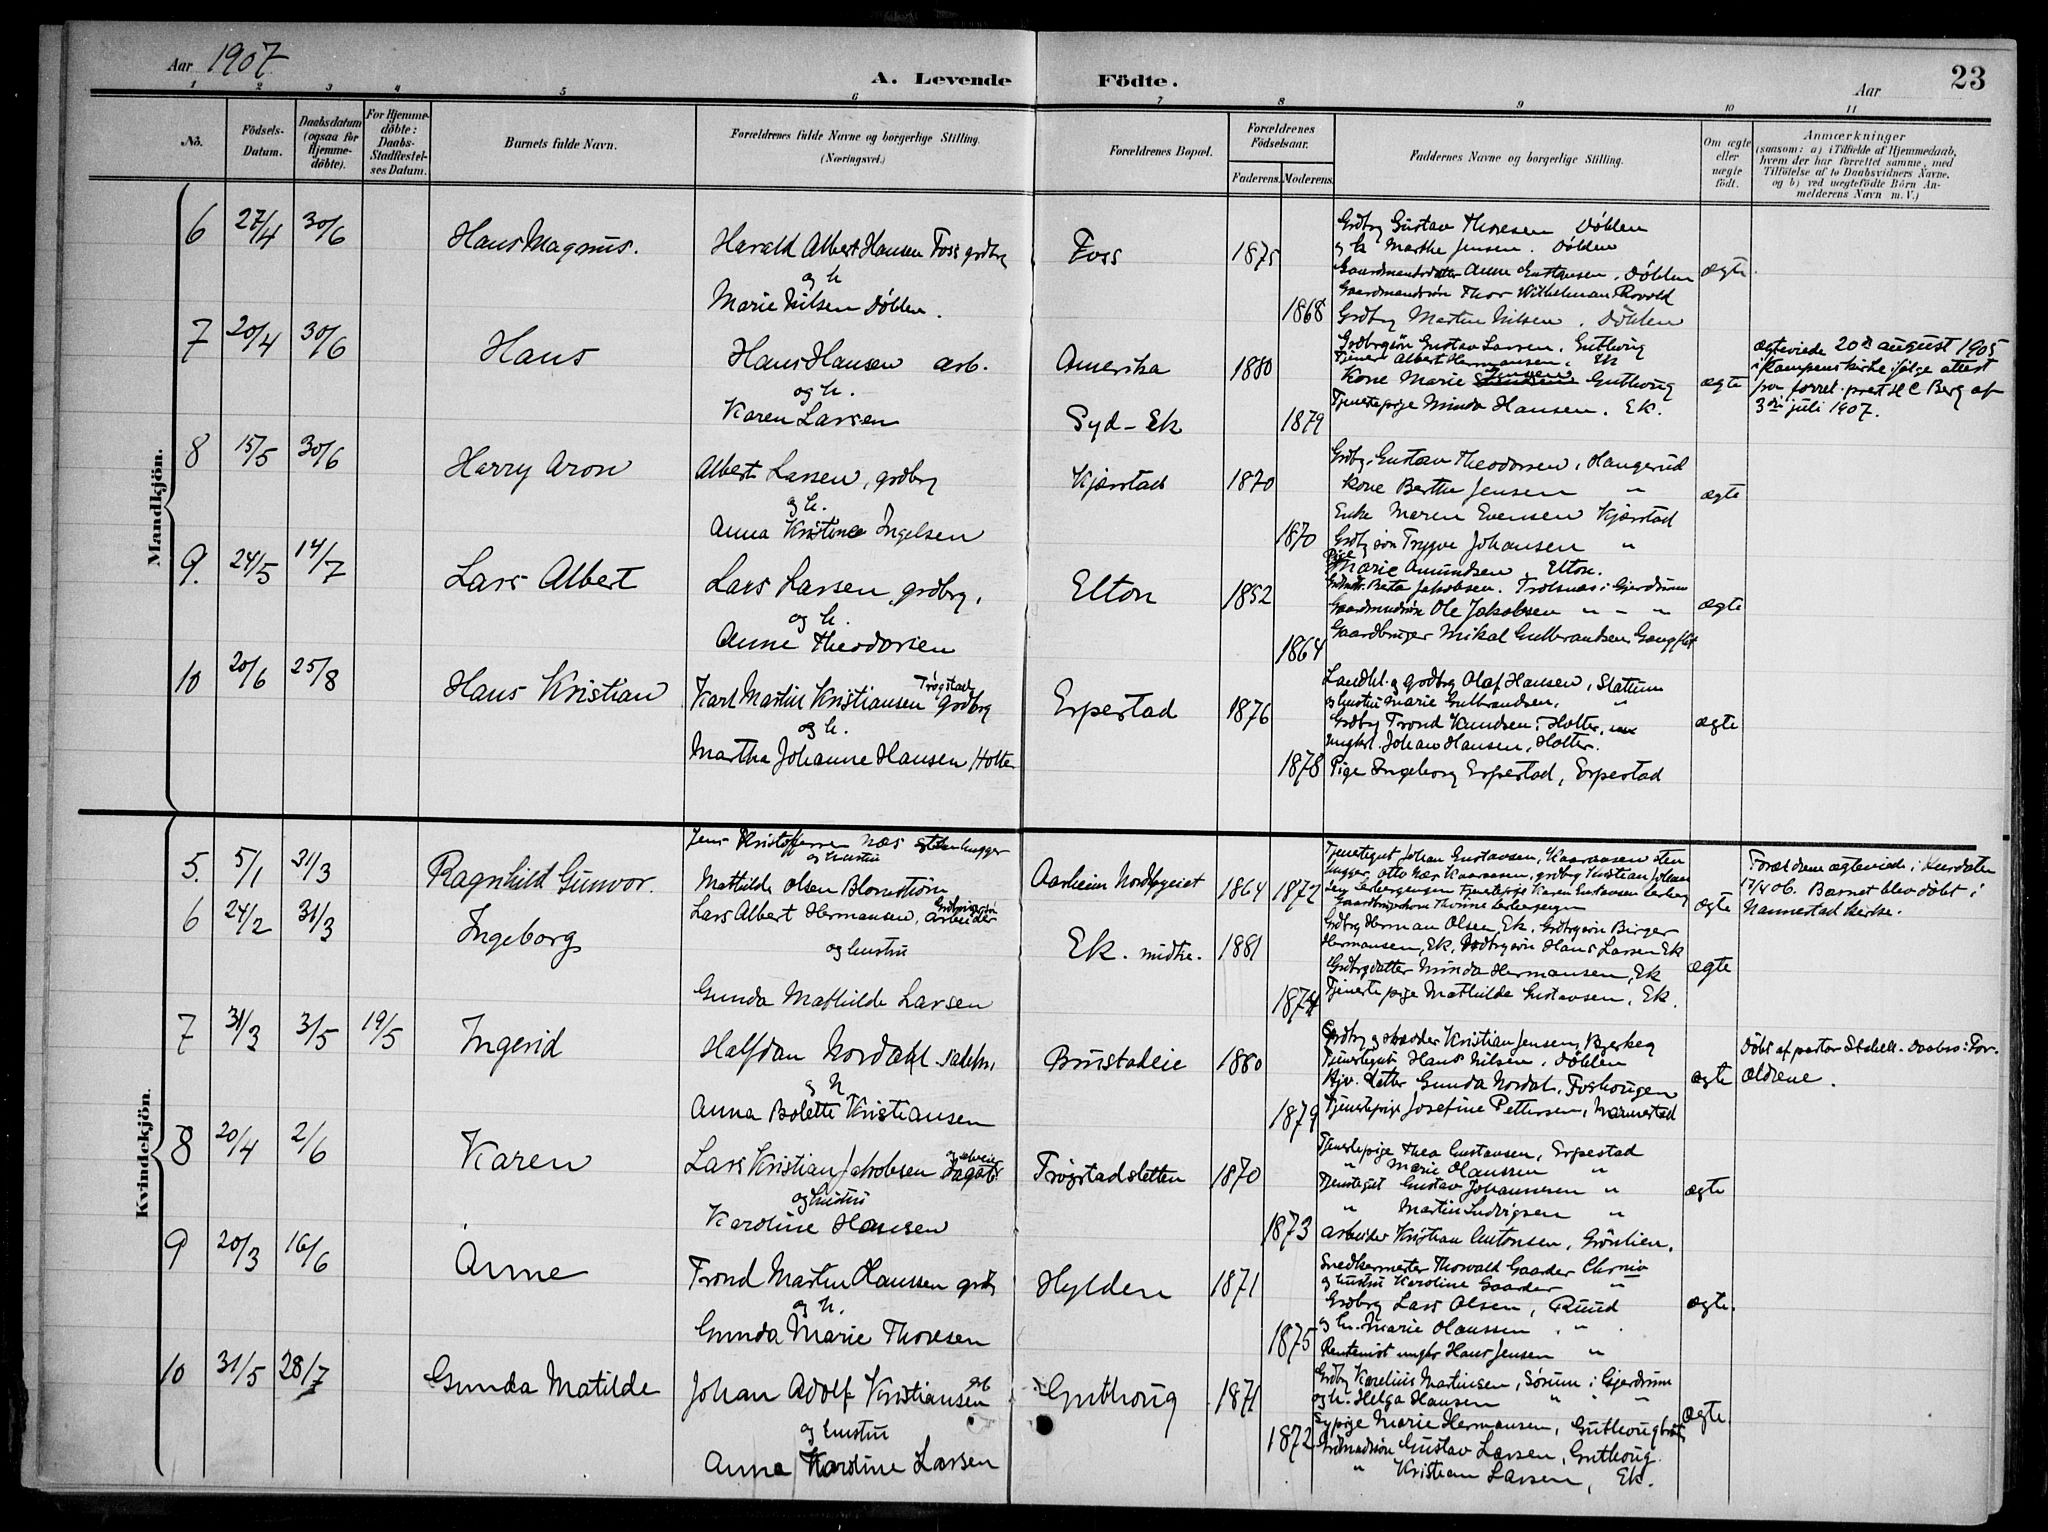 Aar 1907
A. Levende Födte.
Aar
23
1 2 3 4 5 6 7 8 9 10 11
No.
Födsels-Datum.
Daabsdatum (ogsaa for Hjemmedöbte).
For Hjemmedöbte: Daabs-Stadfæstelses Datum.
Barnets fulde Navn.
Forældrenes fulde Navne og borgerlige Stilling.
(Næringsvei.)
Forældrenes Bopæl.
Forældrenes Födselsaar.
Faderens. Moderens.
Faddernes Navne og borgerlige Stilling.
Om ægte eller uægte födt.
Anmærkninger
(saasom: a) i Tilfælde af Hjemmedaab, hvem der har forrettet samme, med Tilföielse af to Daabsvidners Navne, og b) ved uægtefödte Börn Anmelderens Navn m. V.)
Mandkjön.
6 27/4 30/6 Hans Magnus.
Harald Albert Hansen Foss grdbr
og h
Marie Nilsen Døhlen.
Foss 1875 1868
Grdbr Gustav Thoresen Døhlen
og h Marthe Jensen. Døhlen
Gaardmandsdatter Anne Gustavsen, Døhlen
Gaardmandssön Thor Wilhelman Rovold
Grdbr Martin Nilsen, Döhlen
ægte
7 20/4 30/6 Hans
Hans Hansen arb.
og h.
Karen Larsen
Amerika
Syd-Ek
1880 1879
Grdbrsön Gustav Larsen, Guthoug
Tjener Albert Hermansen. Ek
Kone Marie Jensen Guthoug
Tjenestepige Minda Hansen. Ek.
ægte
Ægteviede 20de august 1905
i Kampens kirke ifølge attest
fra forret. prest H C Berg af
3die juli 1907.
8 15/5 30/6 Harry Aron
Albert Larsen, grdbr
og h.
Anna Kristine Ingelsen
Kjærstad 1870 1870
Grdbr. Gustav Theodorsen, Haugerud
Kone Berthe Jensen "
Enke Maren Evensen Kjærstad
Grdbr søn Trygve Johansen "
ægte
9. 24/5 14/7 Lars Albert
Lars Larsen grdbr,
og h.
Anne Theodorsen
Elton 1852 1864
Pige Marie Amundsen, Elton.
Grdmdt. Berta Jakobsen. Trolsnæs i Gjerdrum
Gaardmandssön Ole Jakobsen " " "
Gaardbruger Mikal Gulbrandsen
ægte
10 20/6 25/8 Hans Kristian
Karl Martin Kristiansen Trøgstad grdbr
og h.
Martha Johanne Hansen Holter
Erpestad 1876 1878
Landhl. og grdbr Olaf Hansen, Slattum
og hustru Marie Gulbrandsen, "
Grdbr Trond Knudsen, Holter,
ungkl. Johan Hansen, Holter.
Pige Ingeborg Erpestad, Erpestad
ægte
Kvindekjön.
5. 5/1 31/3 Ragnhild Gunvor.
Jens Kristoffersen Næs stenhugger
og hustru
Mathilde Olsen Blomström
Aasheim Nordbygeiet 1864 1872
Tjenestegut Johan Gustavsen, Kaaraasen sten
hugger, Otto Nær Kaaraasen, grdbrg Kristian Johan
sen Lerbergengen Tjenestepige Karen Gustavsen Lerberg
Gaardbrugerkone Thorine Lerbergengen
ægte
Forældrene ægteviede i Hurdalen
17/4 06. Barnet blev døbt i
Nannestad kirke.
6 24/2 31/3 Ingeborg
Lars Albert Hermansen, Grdbrugersön Arbeider
og hustru
Gunda Mathilde Larsen
Ek. midtre. 1881 1874
Grdbrg Herman Olsen, Ek, Grdbrgsön Birger
Hermansen, Ek, Grdbrgsön Hans Larsen Ek
Grdbrgdatter Minda Hermansen, Ek
Tjenestepige Mathilde Gustavsen, Ek.
ægte
7 31/3 3/5 19/5 Ingerid
Halfdan Nordahl sadelm.
og h
Anna Bolette Kristiansen
Brustadeie 1880 1879
Grdbr og skrædder Kristian Jensen, Berkeg
Tjenestegut Hans Nilsen, Döhlen
Hjv. datter Gunda Nordal, Foshaugen
Tjenestepige Josefine Pettersen, Nannestad
ægte
Döbt af pastor Stabell. Daabsv: For-
ældrene.
8 20/4 2/6 Karen
Lars Kristian Jakobsen og selveier Dagarb.
og hustru
Karoline Hansen
Trøgstadsletten 1870 1873
Tjenestepige Thea Gustavsen, Erpestad
" Marie Olaussen "
Tjenstegut Gustav Johannesen "
" Martin Ludvigsen "
arbeider Kristian Antonsen, Grönlien.
ægte
9 20/3 16/6 Anne
Trond Martin Olaussen grdbr
og h.
Gunda Marie Thoresen
Hylden 1871 1875
Snedkermester Thorvald Gaarder Chrnia
og hustru Karoline Gaarder "
Grdbrg Lars Olsen, Ruud
og h. Marie Olaussen. "
Rentenist ungkr Hans Jensen "
ægte.
10 31/5 28/7 Gunda Matilde
Johan Adolf Kristiansen grb
og hustru
Anna Karoline Larsen
Guthoug 1871 1872
Grdbr Karelius Martinsen, Sørum i Gjerdrum
og h. Helga Hansen " " "
Sypige Marie Hermansen,
Grdmandssön Gustav Larsen, Guthoug.
" Kristian Larsen, Ek.
ægte